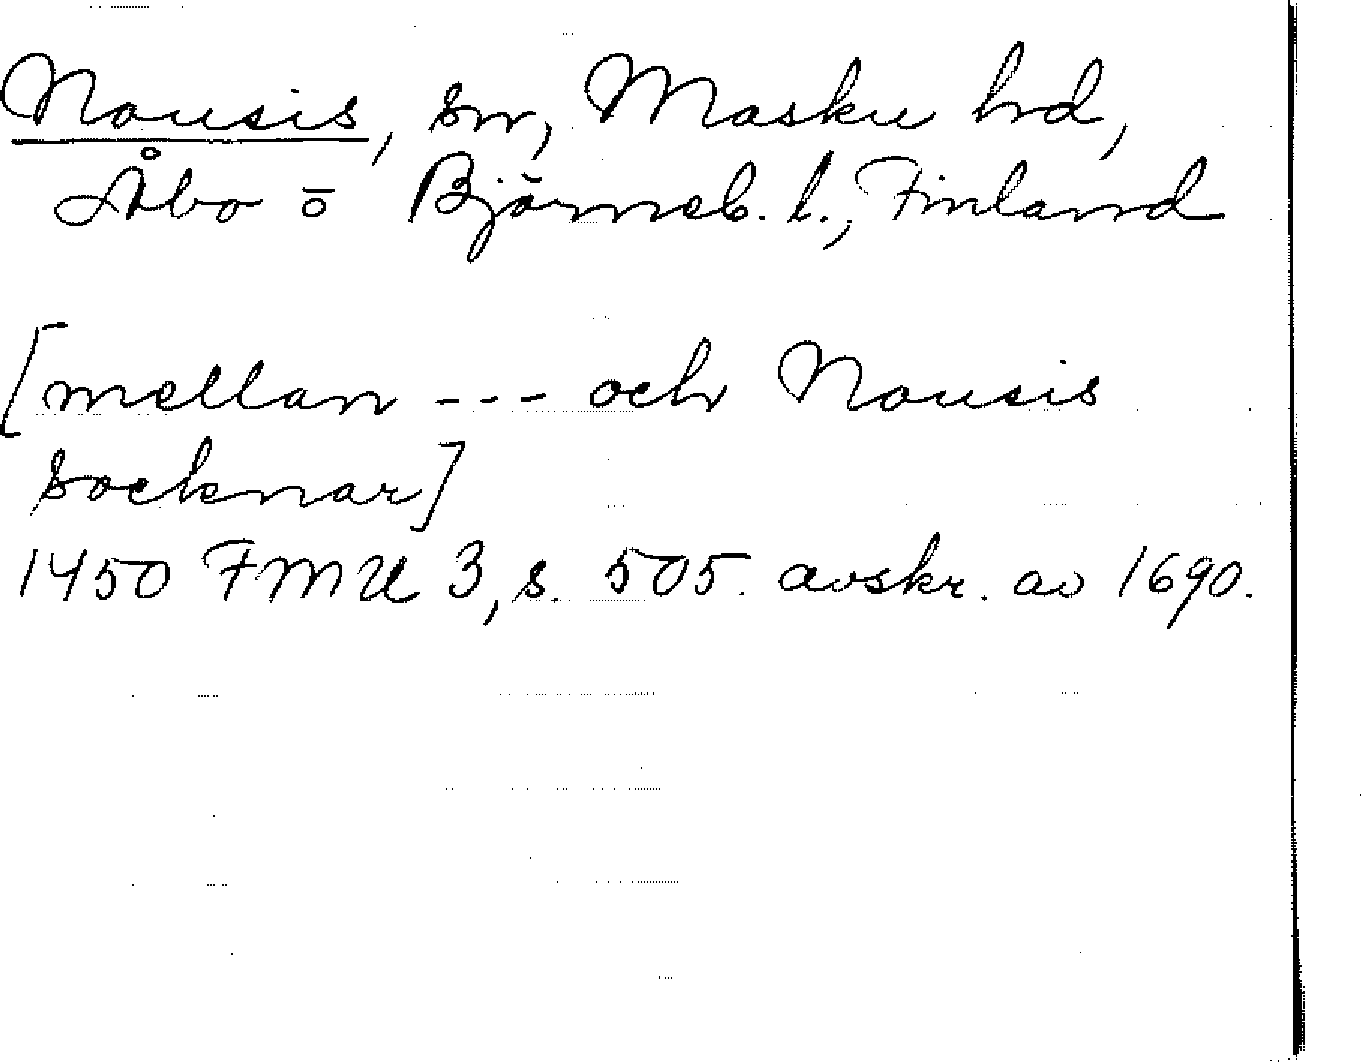 Nousis, sn, Masku hd,
Åbo o Björneb. l., Finland
[mellan --- och Nousis
socknar]
1450 FMU 3, s. 505. avskr. av 1690.